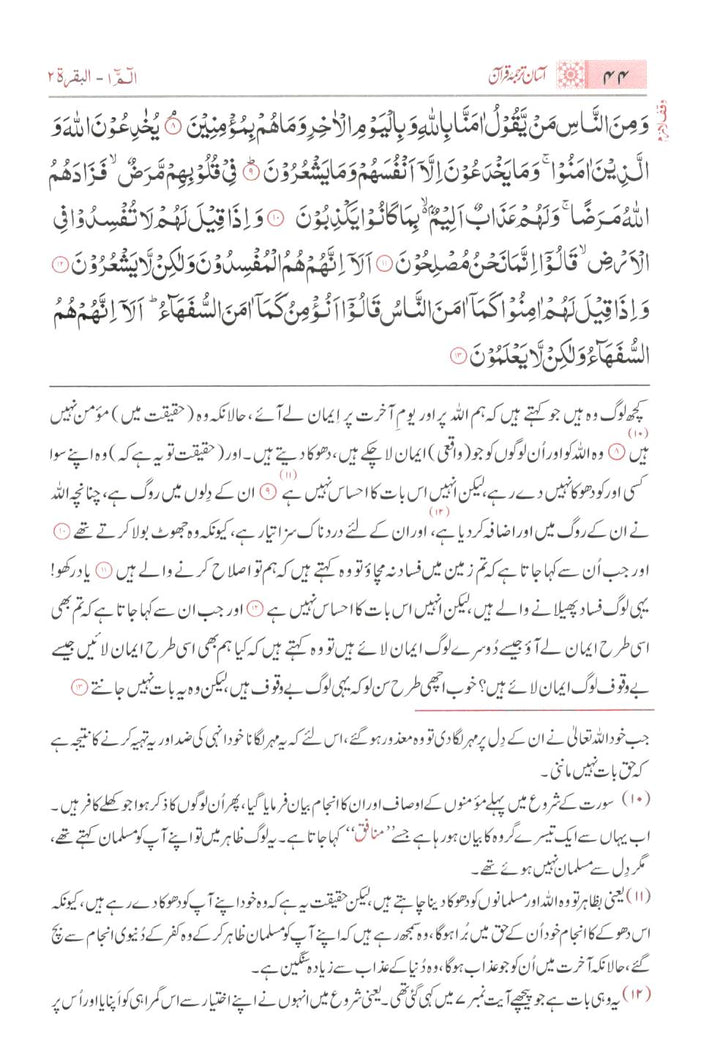 ۴۴ آسان ترجمۂ قرآن الٓمّٓ ۱ – البقرۃ ۲
وقف لازم
وَمِنَ النَّاسِ مَنْ يَّقُوْلُ اٰمَنَّا بِاللّٰهِ وَبِالْيَوْمِ الْاٰخِرِ وَمَا هُمْ بِمُؤْمِنِيْنَ ۘ﴿۸﴾ يُخٰدِعُوْنَ اللّٰهَ وَ
الَّذِيْنَ اٰمَنُوْا ۚ وَمَا يَخْدَعُوْنَ اِلَّاۤ اَنْفُسَهُمْ وَمَا يَشْعُرُوْنَ ؕ﴿۹﴾ فِيْ قُلُوْبِهِمْ مَّرَضٌ ۙ فَزَادَهُمُ
اللّٰهُ مَرَضًا ۚ وَلَهُمْ عَذَابٌ اَلِيْمٌۢ ۙ۬ بِمَا كَانُوْا يَكْذِبُوْنَ ﴿۱۰﴾ وَاِذَا قِيْلَ لَهُمْ لَا تُفْسِدُوْا فِي
الْاَرْضِ ۙ قَالُوْۤا اِنَّمَا نَحْنُ مُصْلِحُوْنَ ﴿۱۱﴾ اَلَاۤ اِنَّهُمْ هُمُ الْمُفْسِدُوْنَ وَلٰكِنْ لَّا يَشْعُرُوْنَ ﴿۱۲﴾
وَاِذَا قِيْلَ لَهُمْ اٰمِنُوْا كَمَاۤ اٰمَنَ النَّاسُ قَالُوْۤا اَنُؤْمِنُ كَمَاۤ اٰمَنَ السُّفَهَآءُ ؕ اَلَاۤ اِنَّهُمْ هُمُ
السُّفَهَآءُ وَلٰكِنْ لَّا يَعْلَمُوْنَ ﴿۱۳﴾
کچھ لوگ وہ ہیں جو کہتے ہیں کہ ہم اللہ پر اور یومِ آخرت پر ایمان لے آئے، حالانکہ وہ (حقیقت میں) مؤمن نہیں
ہیں (۱۰) ﴿۸﴾ وہ اللہ کو اور اُن لوگوں کو جو (واقعی) ایمان لا چکے ہیں، دھوکا دیتے ہیں۔ اور (حقیقت تو یہ ہے کہ) وہ اپنے سوا
کسی اور کو دھوکا نہیں دے رہے، لیکن انہیں اس بات کا احساس نہیں ہے (۱۱) ﴿۹﴾ ان کے دِلوں میں روگ ہے، چنانچہ اللہ
نے ان کے روگ میں اور اضافہ کردیا ہے (۱۲)، اور ان کے لئے دردناک سزا تیار ہے، کیونکہ وہ جھوٹ بولا کرتے تھے ﴿۱۰﴾
اور جب اُن سے کہا جاتا ہے کہ تم زمین میں فساد نہ مچاؤ تو وہ کہتے ہیں کہ ہم تو اصلاح کرنے والے ہیں ﴿۱۱﴾ یاد رکھو!
یہی لوگ فساد پھیلانے والے ہیں، لیکن انہیں اس بات کا احساس نہیں ہے ﴿۱۲﴾ اور جب ان سے کہا جاتا ہے کہ تم بھی
اسی طرح ایمان لے آؤ جیسے دُوسرے لوگ ایمان لائے ہیں تو وہ کہتے ہیں کہ کیا ہم بھی اسی طرح ایمان لائیں جیسے
بے وقوف لوگ ایمان لائے ہیں؟ خوب اچھی طرح سن لو کہ یہی لوگ بے وقوف ہیں، لیکن وہ یہ بات نہیں جانتے ﴿۱۳﴾
جب خود اللہ تعالیٰ نے ان کے دِل پر مہر لگادی تو وہ معذور ہوگئے، اس لئے کہ یہ مہر لگانا خود انہی کی ضد اور یہ تہیہ کرنے کا نتیجہ ہے
کہ حق بات نہیں ماننی۔
(۱۰) سورت کے شروع میں پہلے مؤمنوں کے اوصاف اور ان کا انجام بیان فرمایا گیا، پھر اُن لوگوں کا ذکر ہوا جو کھلے کافر ہیں۔
اب یہاں سے ایک تیسرے گروہ کا بیان ہو رہا ہے جسے ’’منافق‘‘ کہا جاتا ہے۔ یہ لوگ ظاہر میں تو اپنے آپ کو مسلمان کہتے تھے،
مگر دِل سے مسلمان نہیں ہوئے تھے۔
(۱۱) یعنی بظاہر تو وہ اللہ اور مسلمانوں کو دھوکا دینا چاہتے ہیں، لیکن حقیقت یہ ہے کہ وہ خود اپنے آپ کو دھوکا دے رہے ہیں، کیونکہ
اس دھوکے کا انجام خود اُن کے حق میں بُرا ہوگا، وہ سمجھ رہے ہیں کہ اپنے آپ کو مسلمان ظاہر کرکے وہ کفر کے دُنیوی انجام سے بچ
گئے، حالانکہ آخرت میں اُن کو جو عذاب ہوگا، وہ دُنیا کے عذاب سے زیادہ سنگین ہے۔
(۱۲) یہ وہی بات ہے جو پیچھے آیت نمبر ۷ میں کہی گئی تھی۔ یعنی شروع میں انہوں نے اپنے اختیار سے اس گمراہی کو اَپنایا اور اُس پر